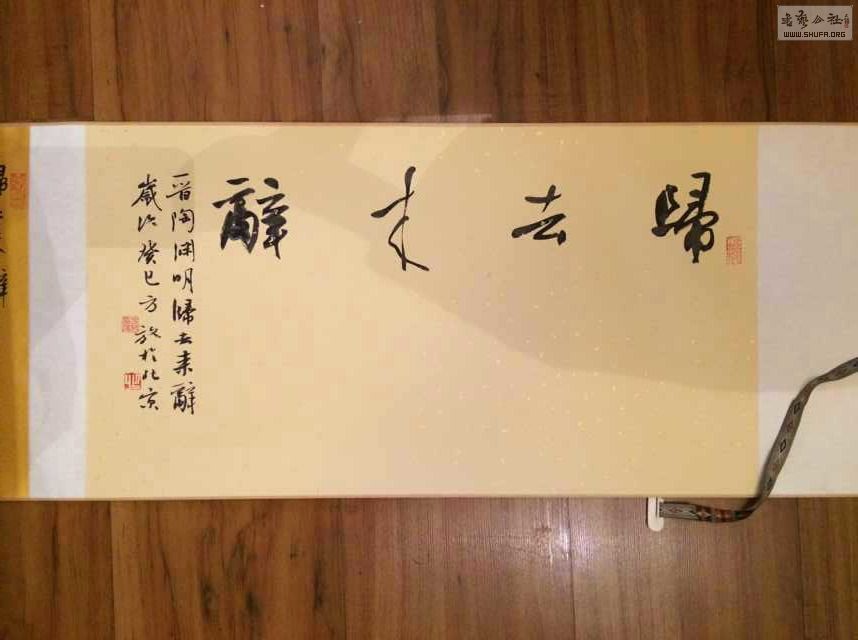 歸去来辭
晋陶渊明歸去来辭
歲次癸巳方放於北京
書藝公社
WWW.SHUFA.ORG